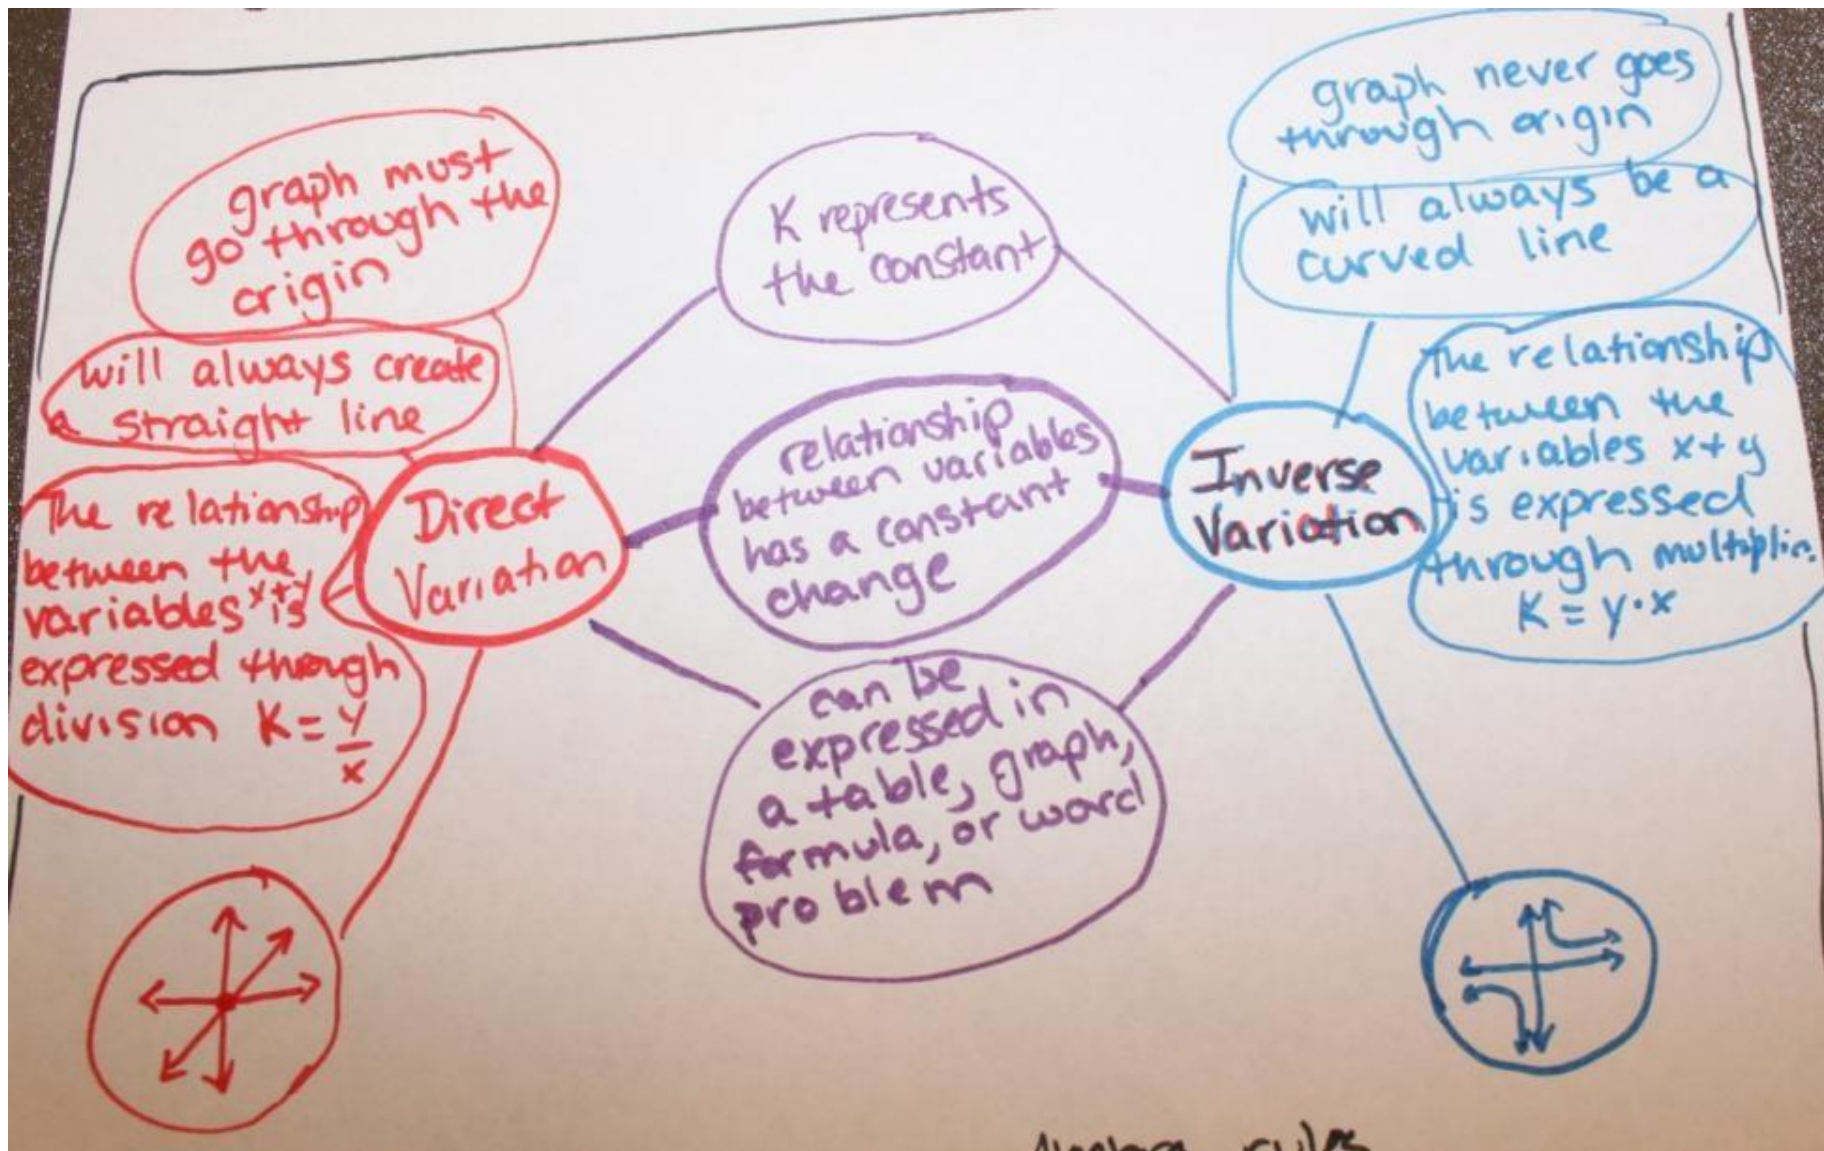 graph must
go through the
origin
will always create
a straight line
The relationship
between the
variables x+y is
expressed through
division K = y
x
Direct
Variation
K represents
the constant
relationship
between variables
has a constant
change
can be
expressed in
a table, graph,
formula, or word
problem
graph never goes
through origin
will always be a
curved line
Inverse
Variation
The relationship
between the
variables x+y
is expressed
through multiplic.
K = y·x
rules